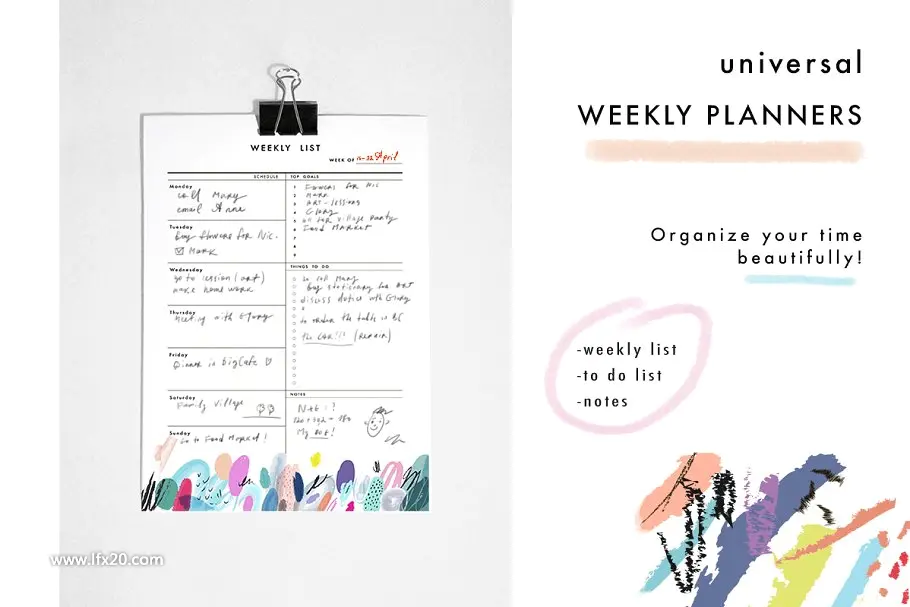 WEEKLY LIST
WEEK OF 16-22 April
SCHEDULE
Monday
call Mary
email Anne
Tuesday
Buy flowers for Nic.
Mark
Wednesday
go to session (art)
make home work
Thursday
Meeting with Glory
Friday
Dinner in BigCafe
Saturday
Family Village
Sunday
Go to Food Market!
TOP GOALS
1 Flowers for Nic
2 Mark
3 ART-session
4 Glory
5 for Village Party
6 Food Market
7
8
9
THINGS TO DO
to call Mary
Buy stationary for ART
discuss duties with Glory
to order the table in BC
the CAR!!! (Repair)
NOTES
My!
universal
WEEKLY PLANNERS
Organize your time
beautifully!
-weekly list
-to do list
-notes
www.lfx20.com